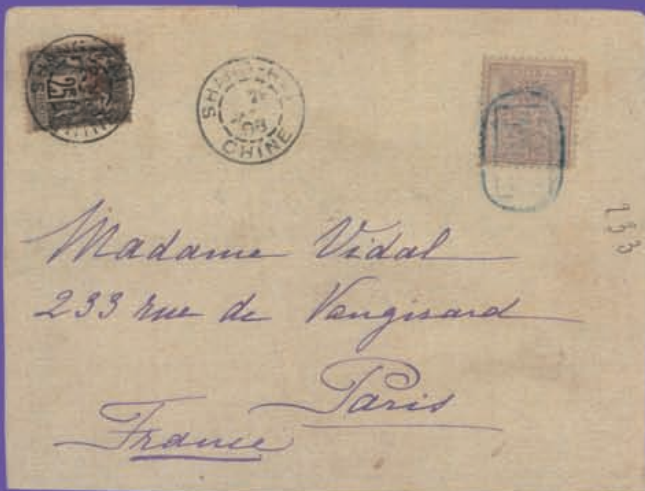 SHANG-HAI
CHINE
25
Madame Vidal
233 rue de Vaugirard
Paris
France
233